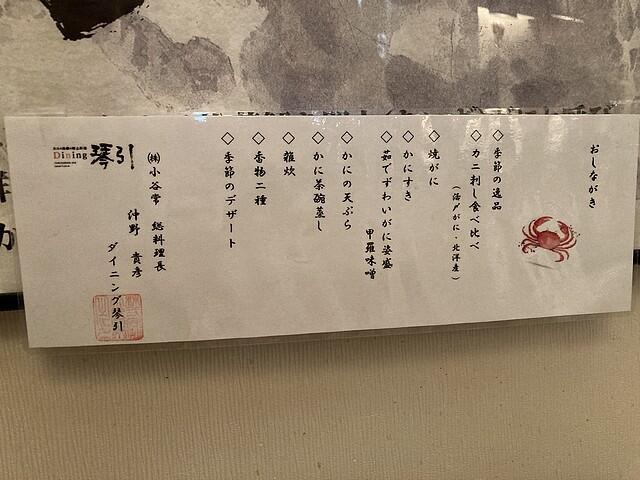 おしながき
◇季節の逸品
◇カニ刺し食べ比べ
（活〆がに・北洋産）
◇焼がに
◇かにすき
◇茹でずわいがに姿盛
甲羅味噌
◇かにの天ぷら
◇かに茶碗蒸し
◇雑炊
◇香物二種
◇季節のデザート
㈱小谷常　総料理長
仲野　貴彦
ダイニング琴引
Dining 琴引